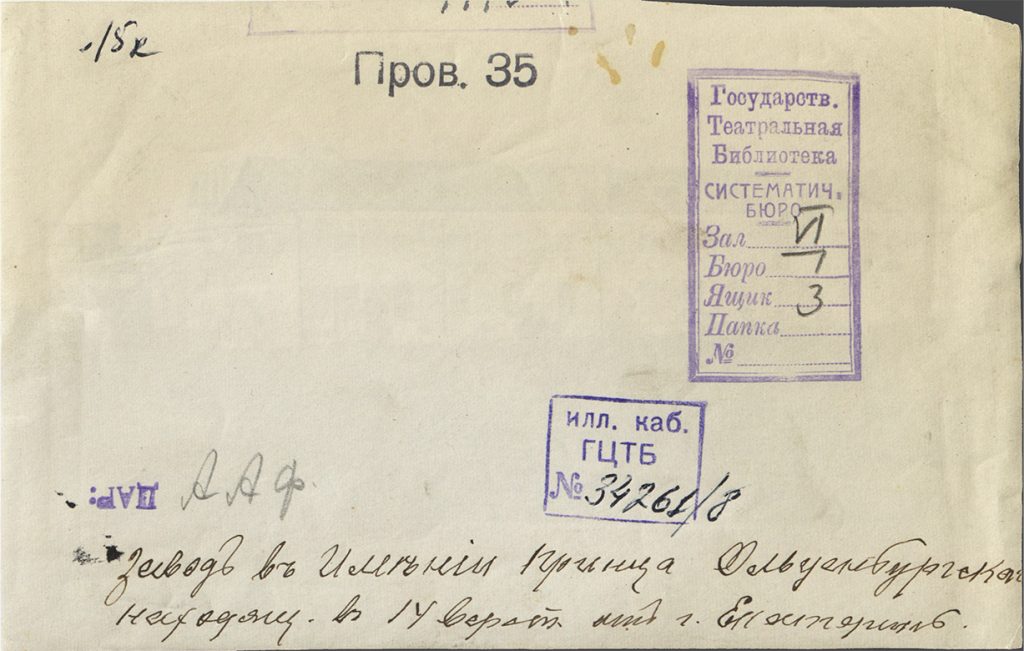 1/5 к
Пров. 35
Государств.
Театральная
Библиотека
СИСТЕМАТИЧ.
БЮРО
Зал VI
Бюро 1
Ящик 3
Папка
№
илл. каб.
ГЦТБ
№ 34261/8
ДАР: А А Ф.
Заводъ въ Имѣніи Принца Ольденбургска
находящ. в 14 верст. отъ г.